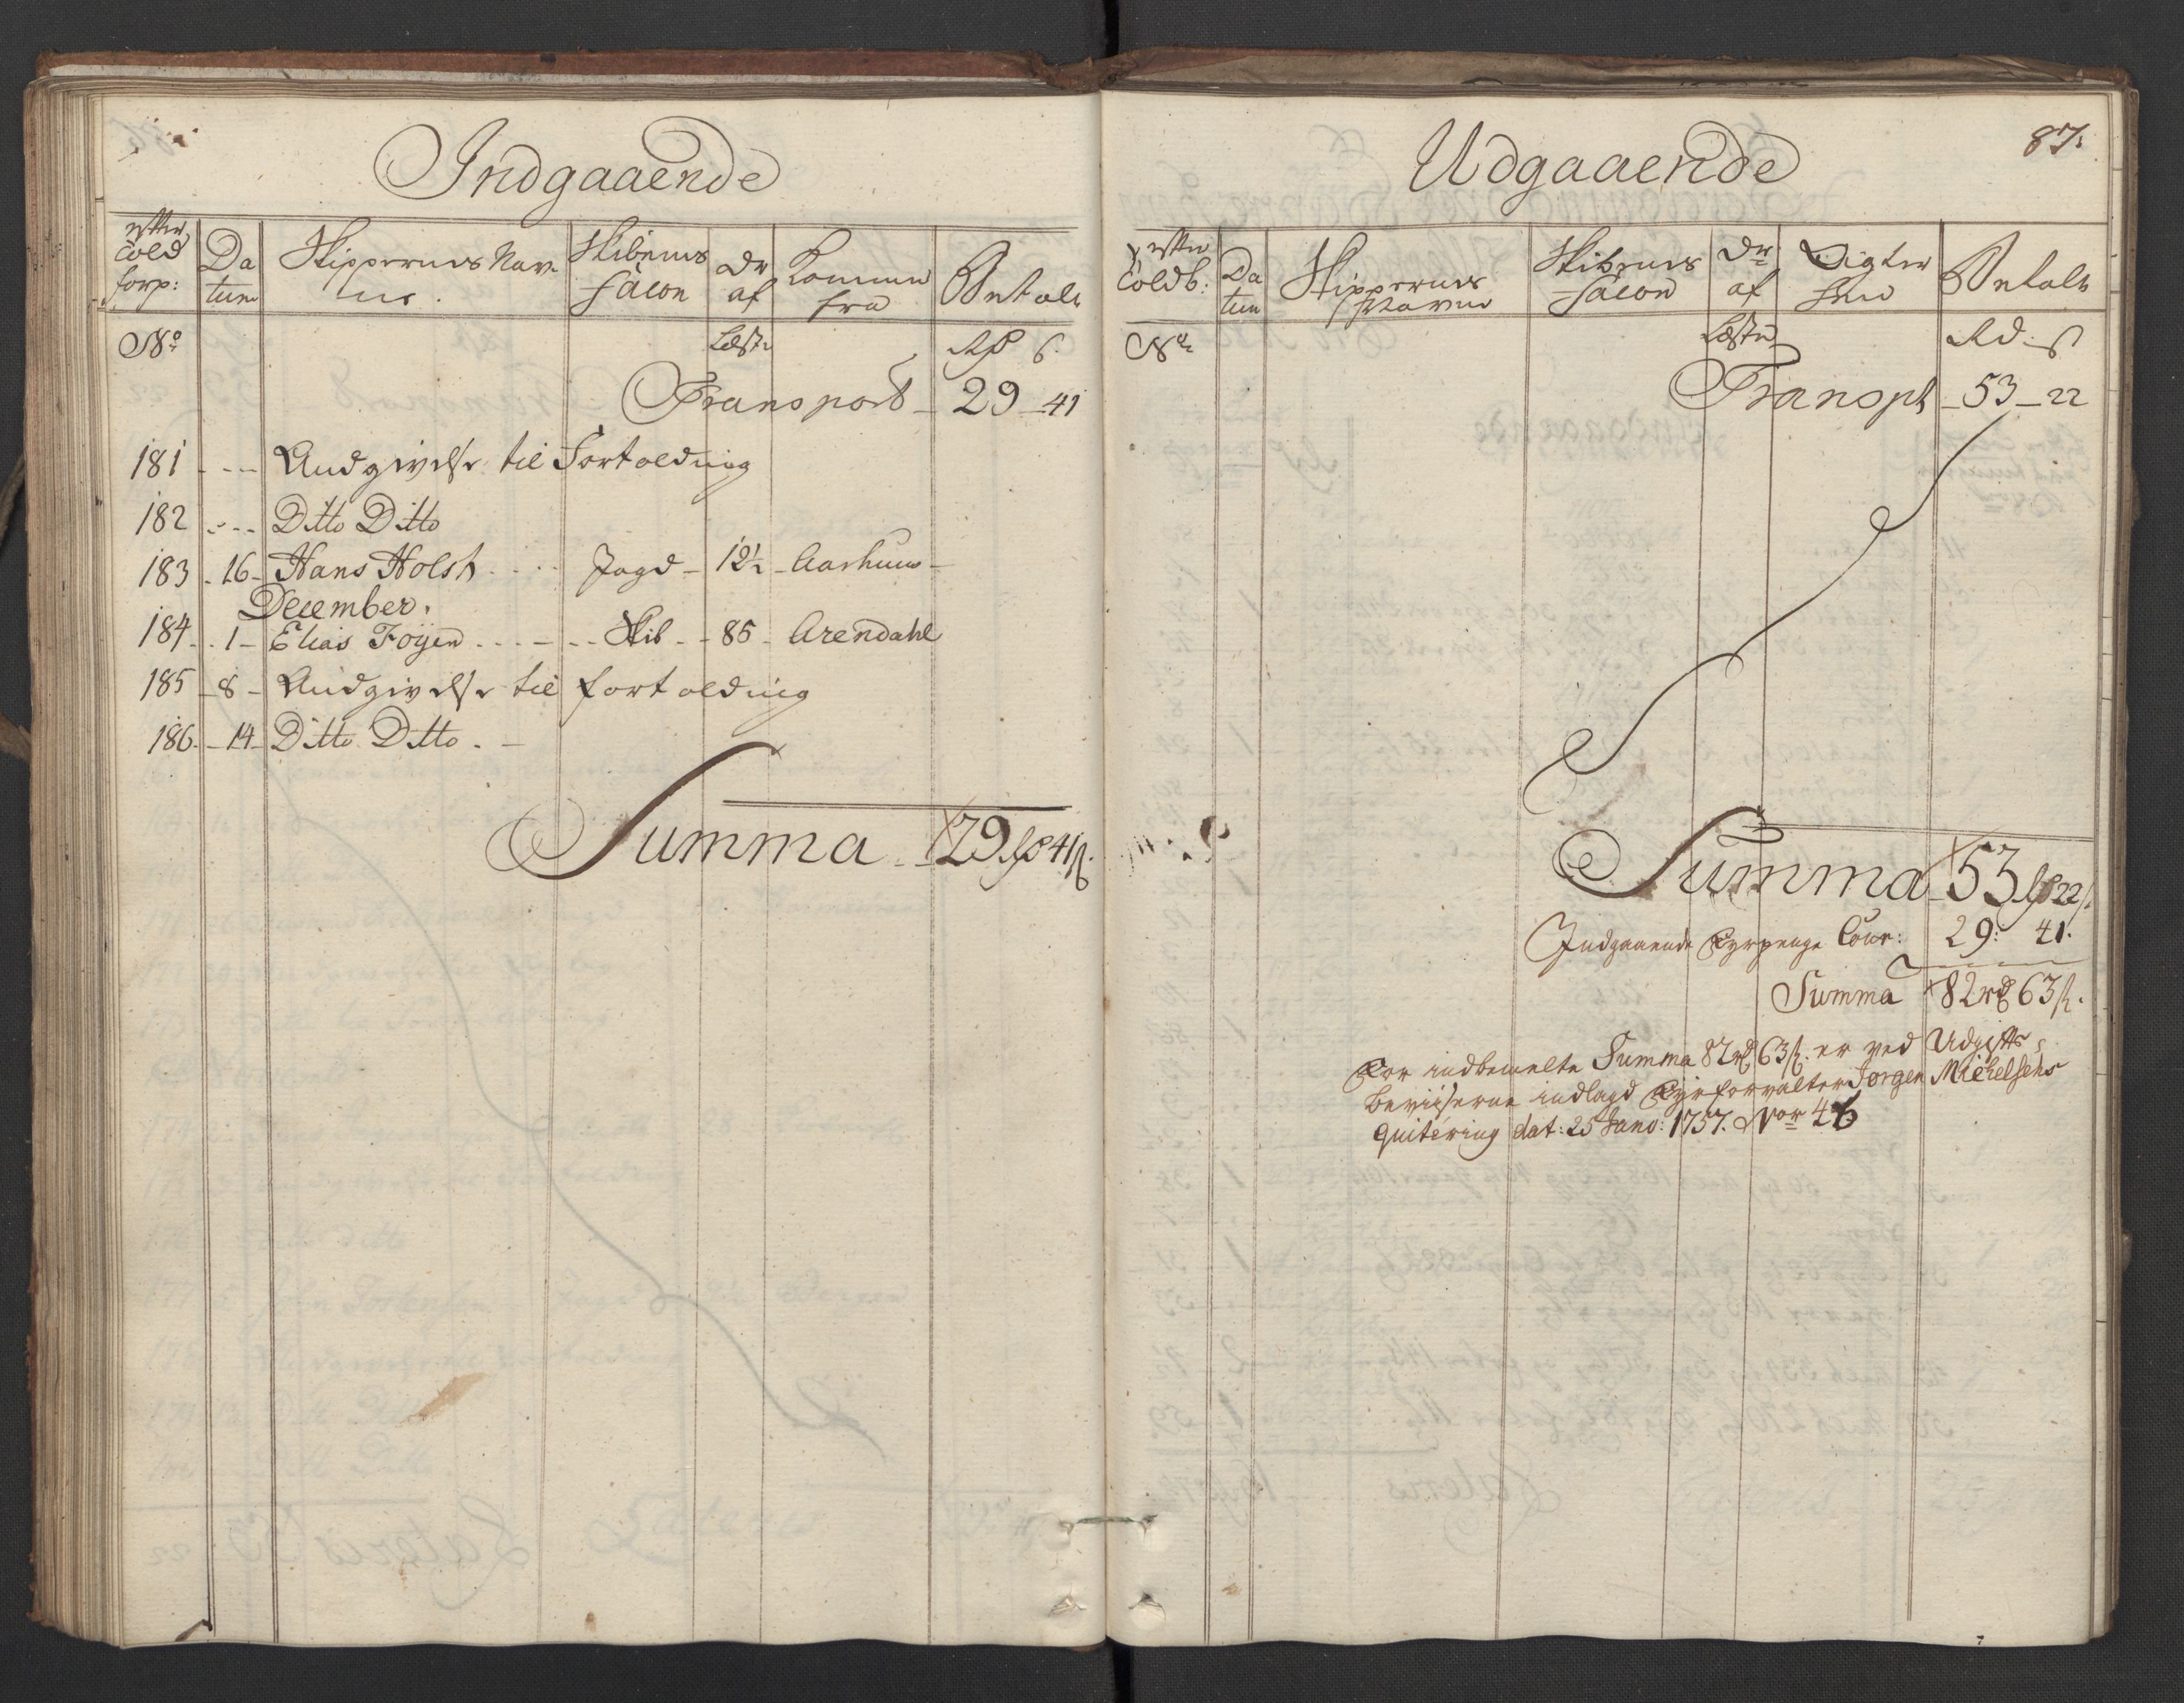 Indgaaende
efter Told forp: | Da tum | Skippernes Nav ne. | Skibenes Facon | Dr af | Komme fra | Betale
No | Læster | Rd ß.
Transport 29 - 41
181 - - - Angivelse til Fortolding
182 - - - Ditto Ditto
183 - 16 - Hans Holst - - - Jagd - 12½ - Aarhuus -
December.
184 - 1 - Elias Foÿen - - - - Skib - - 85 - Arendahl
185 - 8 - Angivelse til fortolding
186 - 14 - Ditto Ditto. -
Summa - 29 Rd 41 ß.
87.
Udgaaende
efter Toldb: | Da tum | Skippernes Navne | Skibenes Facon | Dr af | Betale
No | Læster | Rd. ß
Transpt - 53 - 22
Summa 53 Rd 22 ß.
Indgaaende Fyrpenge Cour: 29: 41.
Summa 82 rd 63 ß.
For indbemelte Summa 82 rd 63 ß. er ved Udgifts
Beviiserne indlagd Fyrforvalter Jørgen Michelsens
quitering dat: 25 Janv: 1757. Nor 46